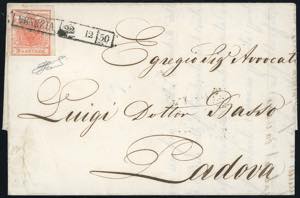 VENEZIA
12 50
Egregio Sig.r Avvocato
Luigi Dottor Basso
Padova